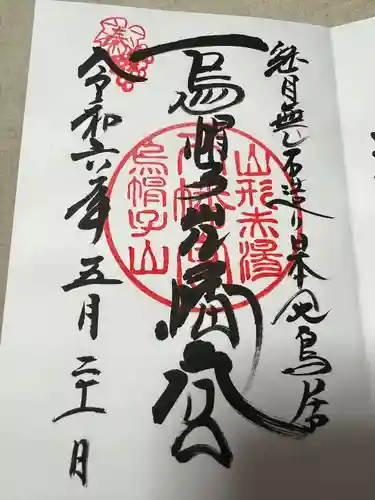 継目無し石造り日本一の鳥居
烏帽子山八幡宮
令和六年五月二十一日
山形赤湯
烏帽子山